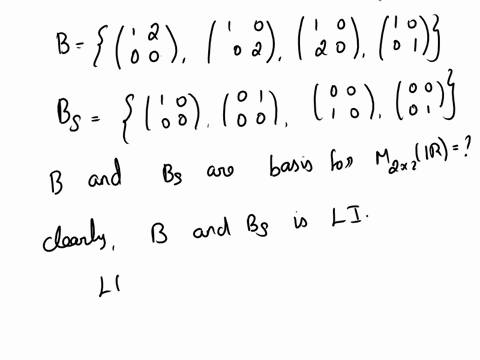 B = { (1 2 0 0), (1 0 0 2), (1 0 2 0), (1 0 0 1) }
B_S = { (1 0 0 0), (0 1 0 0), (0 0 1 0), (0 0 0 1) }
B and B_S are basis for M_2x2(IR) = ?
clearly, B and B_S is LI.
L(